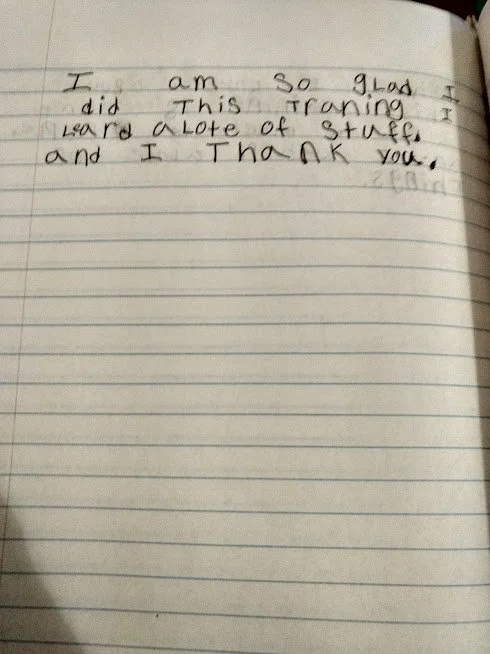 I am so glad I
did This Traning I
Leard a Lote of Stuff.
and I Thank you.